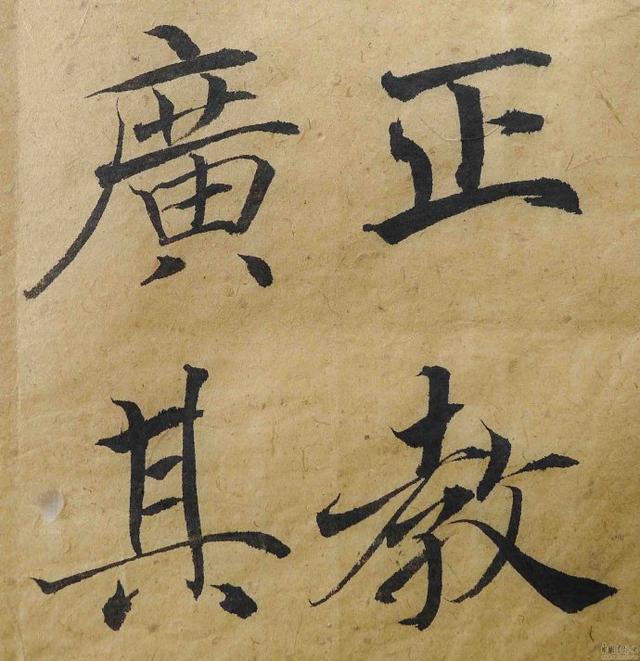 正教
廣其